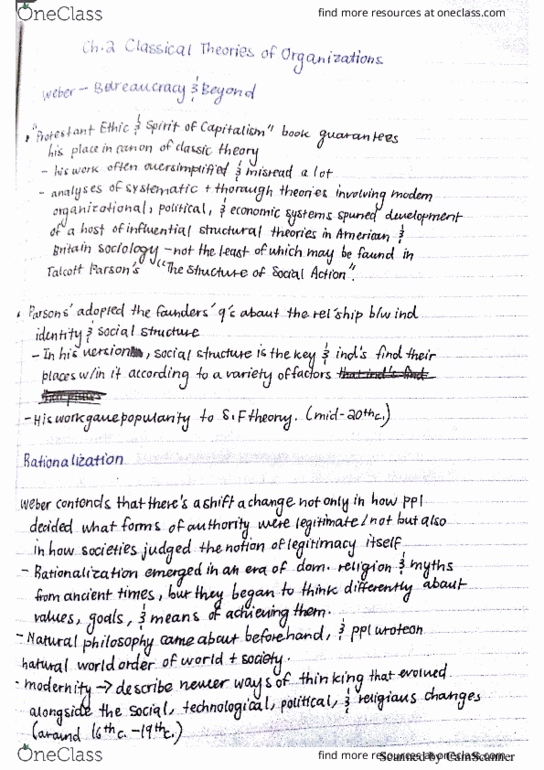 OneClass
find more resources at oneclass.com
Ch.2 Classical Theories of Organizations
Weber - Bureaucracy & Beyond
• "Protestant Ethic & Spirit of Capitalism" book guarantees
his place in canon of classic theory
- his work often oversimplified & misread a lot
- analyses of systematic + thorough theories involving modern
organizational, political, & economic systems spurred development
of a host of influential structural theories in American &
Britain sociology - not the least of which may be found in
Talcott Parson's "The Structure of Social Action".
• Parsons' adopted the founders' q's about the rel'ship b/w ind
identity & social structure
- In his version, social structure is the key & ind's find their
places w/in it according to a variety of factors that ind's find
- His work gave popularity to S.F theory. (mid-20th c.)
Rationalization
Weber contends that there's a shift a change not only in how ppl
decided what forms of authority were legitimate/not but also
in how societies judged the notion of legitimacy itself
- Rationalization emerged in an era of dom. religion & myths
from ancient times, but they began to think differently about
values, goals, & means of achieving them.
- Natural philosophy came about beforehand, & ppl wrote on
natural world order of world + society.
- modernity → describe newer ways of thinking that evolved
alongside the social, technological, political, & religious changes
(around 16th c. - 19th c.)
OneClass
find more resources at oneclass.com
Scanned by CamScanner